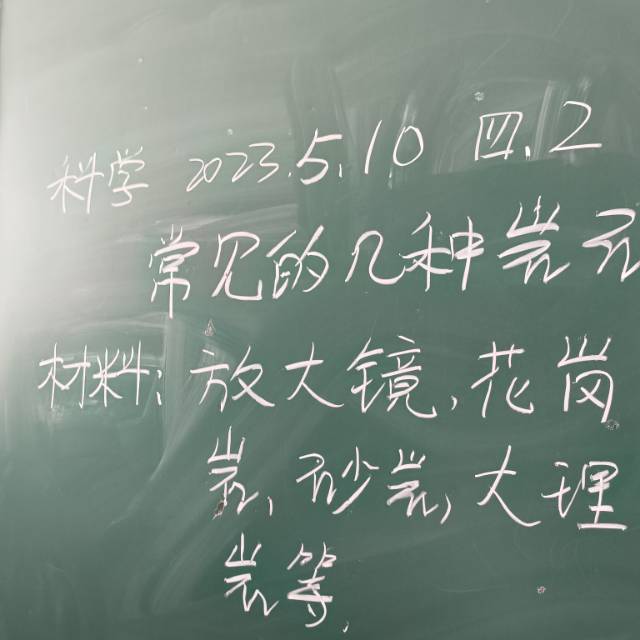 科学 2023.5.10 四.2
常见的几种岩石
材料:放大镜,花岗
岩,砂岩,大理
岩等.